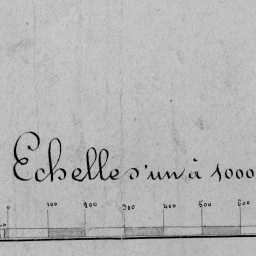 Echelle d'un à 1000
0 100 200 300 400 500 600